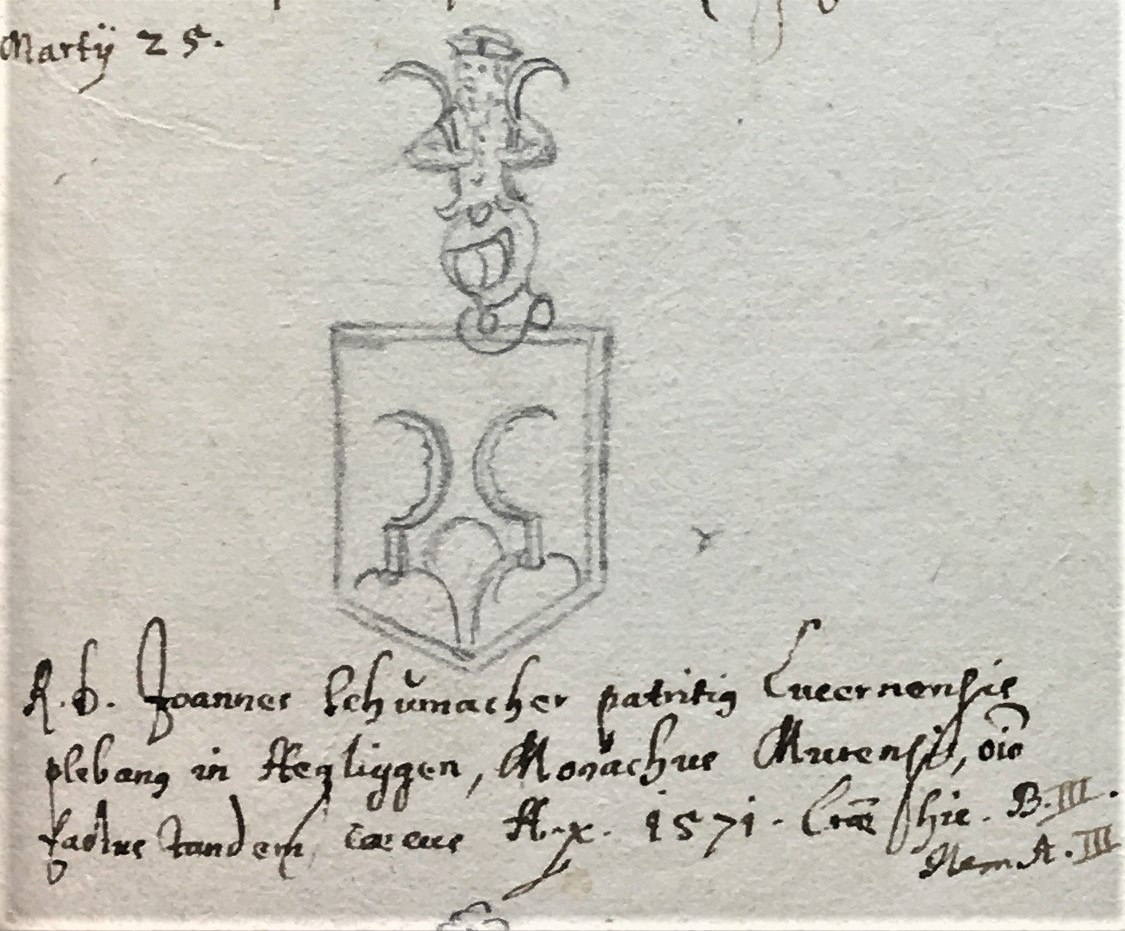 Martÿ 25.
R. D. Joannes Schŭmacher patritiꝰ Lucernensis
plebanꝰ in Aegliggen, Monachus Murensis, oīo
factus tandem cæcus A. x. 1571. hic. B. III.
Item A. III